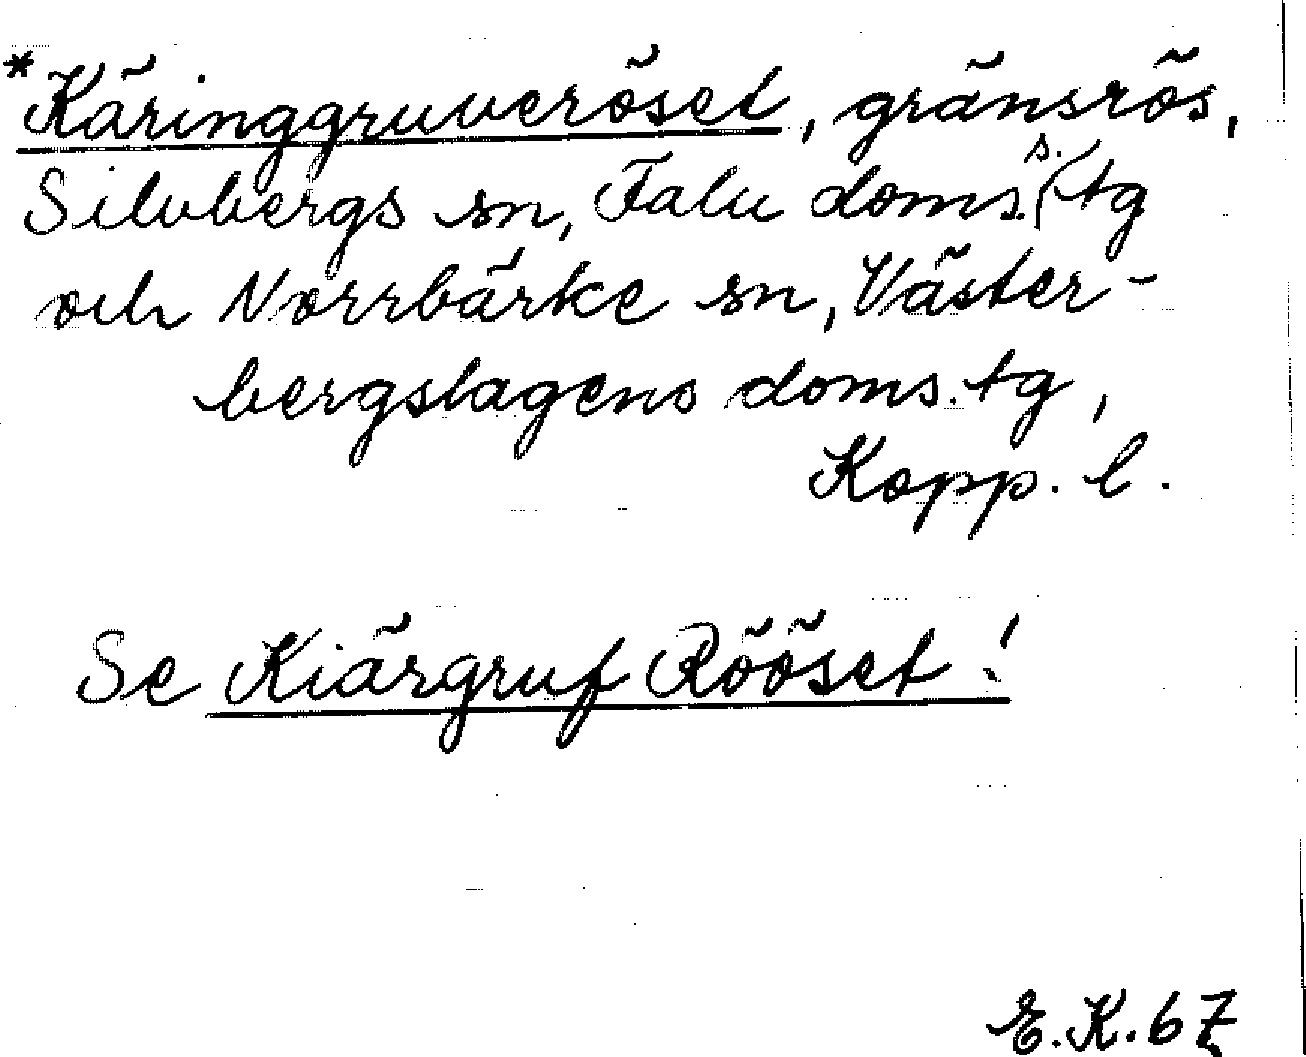 *Käringgruveröset, gränsrös,
Silvbergs sn, Falu doms.s.tg
och Norrbärke sn, Väster-
bergslagens doms.tg,
Kopp. l.
Se Kiärgruf Rööset!
E.K. 67